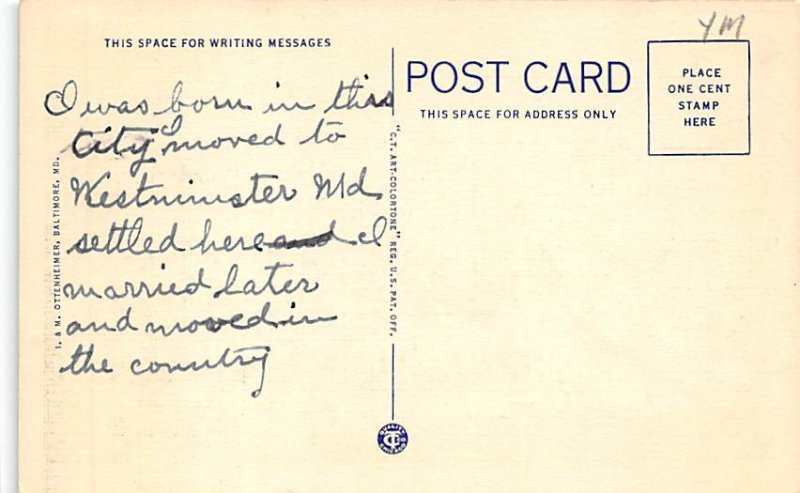 YM
THIS SPACE FOR WRITING MESSAGES
I was born in this
City I moved to
Westminister Md.
settled here and I
married later
and moved in
the country
I. & M. OTTENHEIMER, BALTIMORE, MD.
"C.T. ART-COLORTONE" REG. U.S. PAT. OFF.
POST CARD
THIS SPACE FOR ADDRESS ONLY
PLACE
ONE CENT
STAMP
HERE
QUALITY
CT
CHICAGO